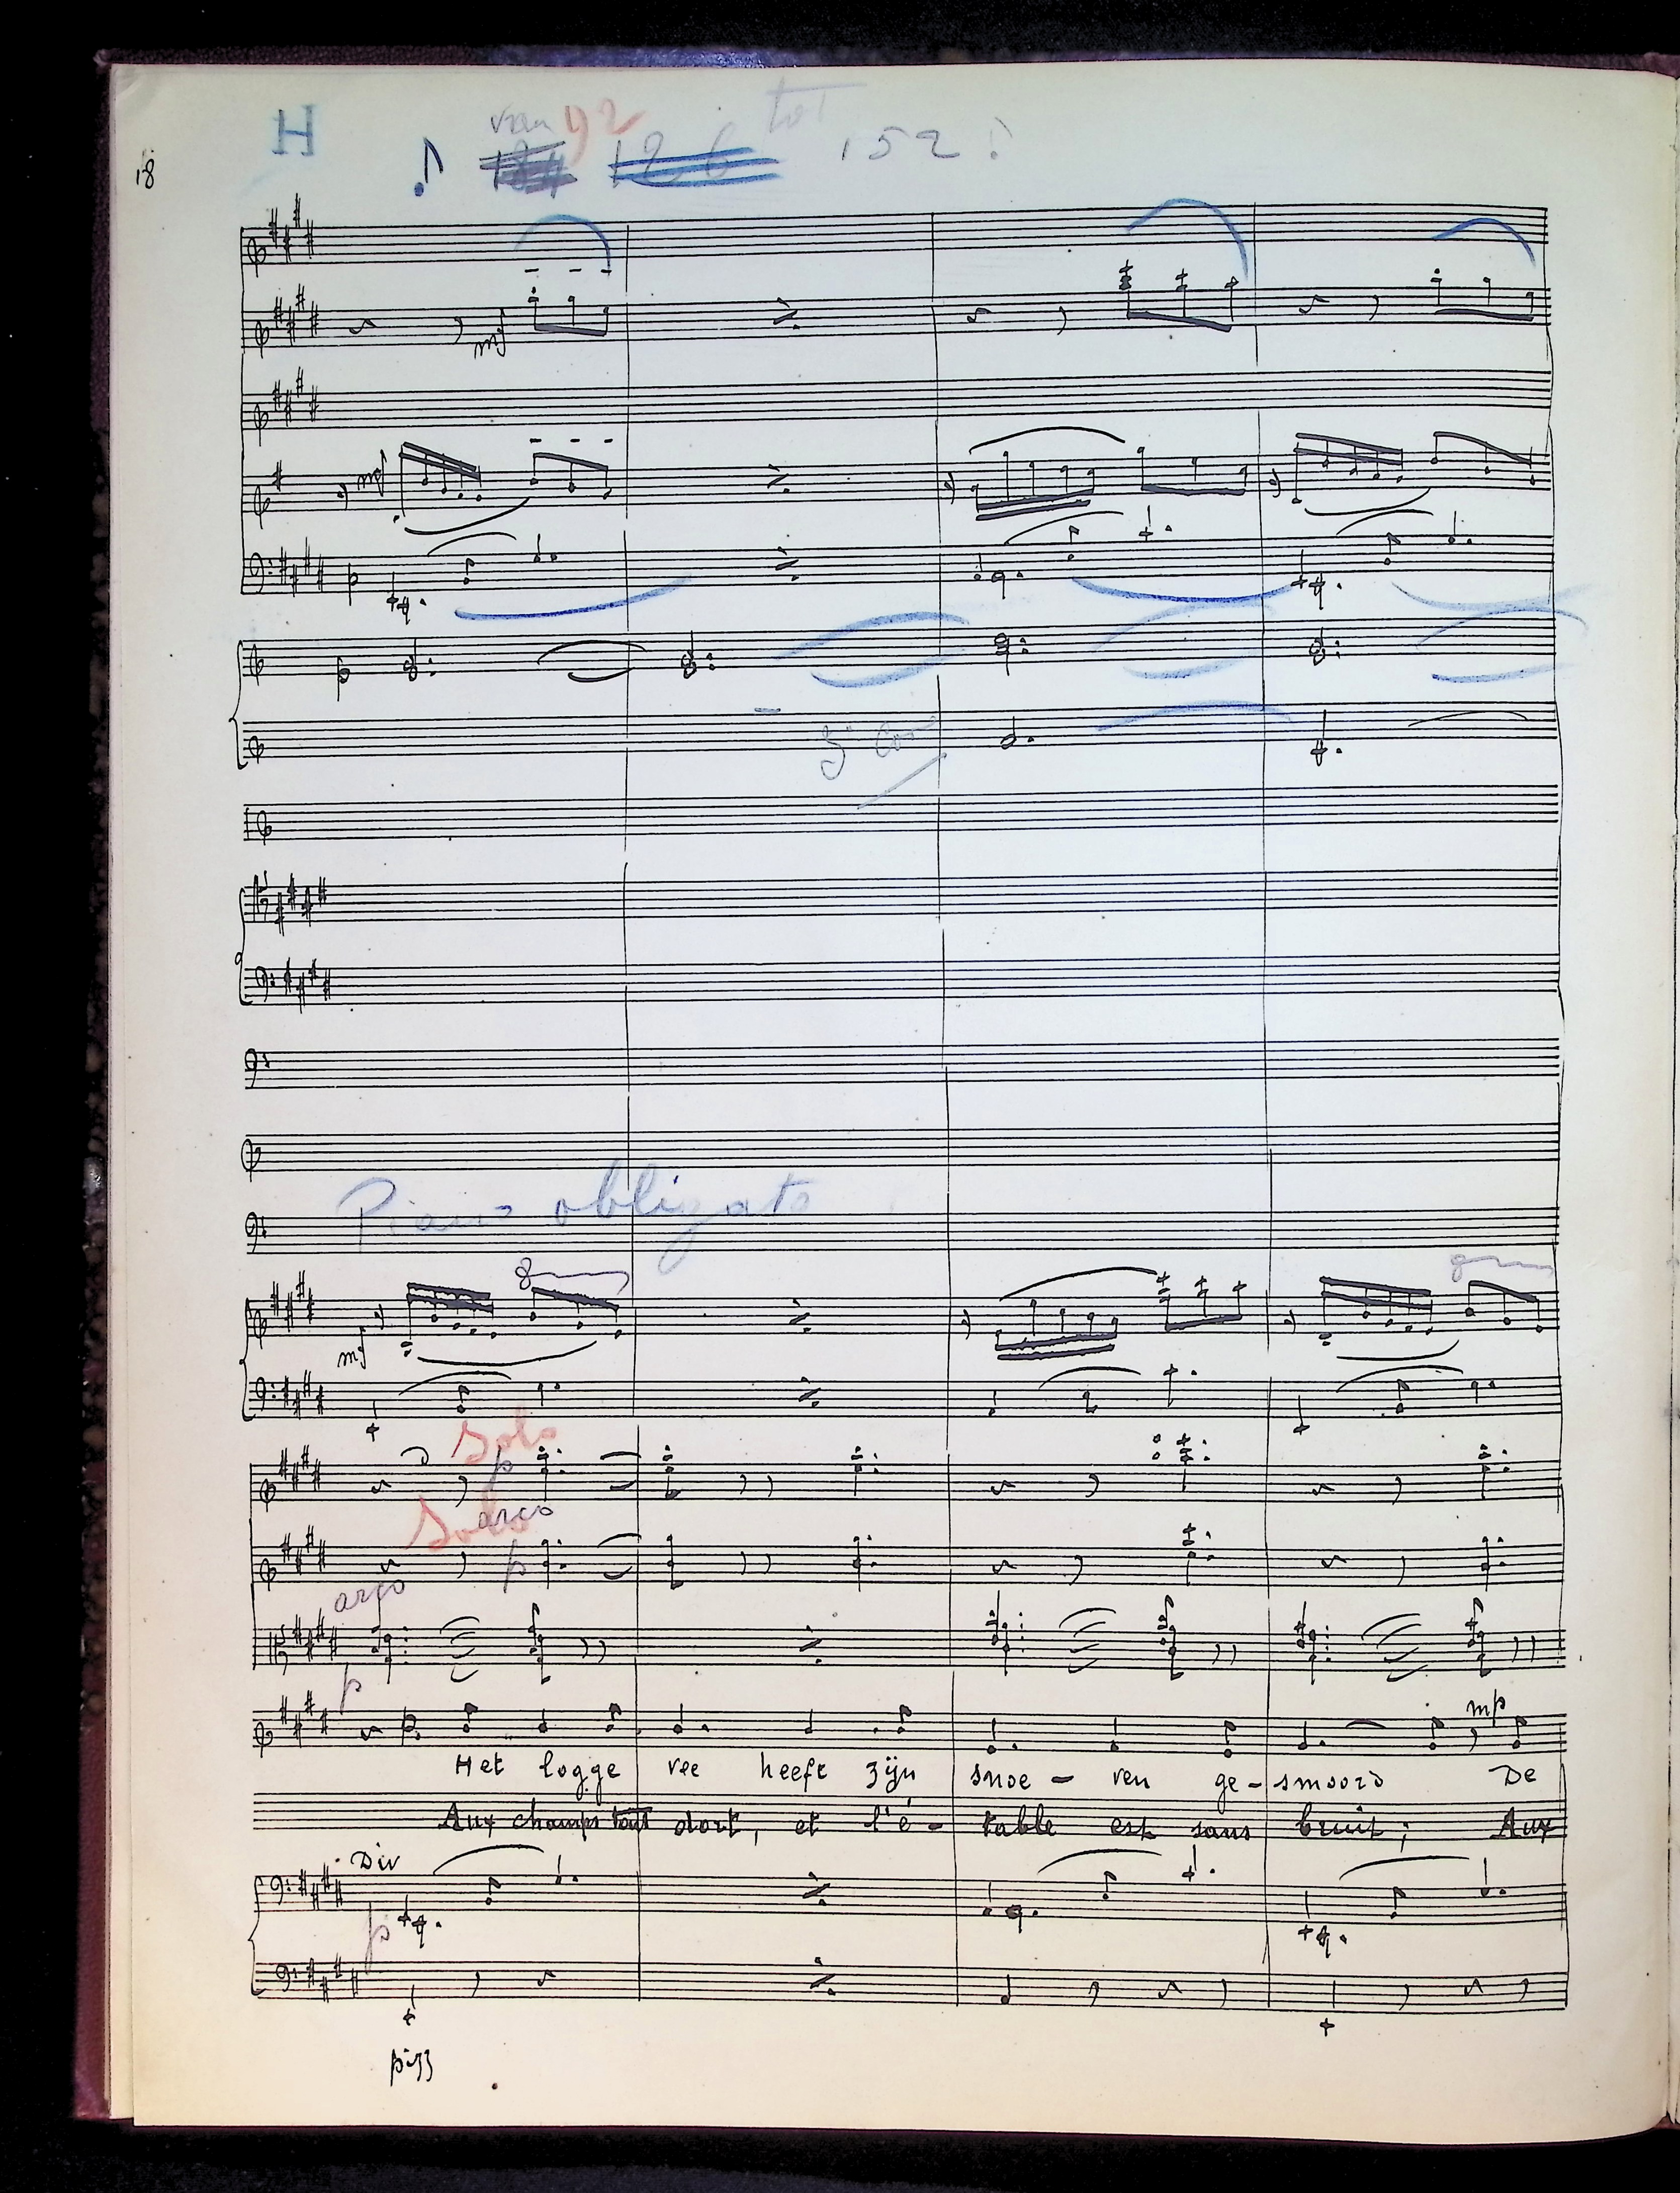 H
van 92 tot
126 152!
18
mf
mf
3º Cor
Piano obligato
8
8
mf
Solo
p
Solo arco
p
arco
p
mp
Het logge vee heeft zijn snoe - ven ge - smoord De
Aux champs tout dort, et l'é - table est sans bruit ; Aux
Div
p
pizz